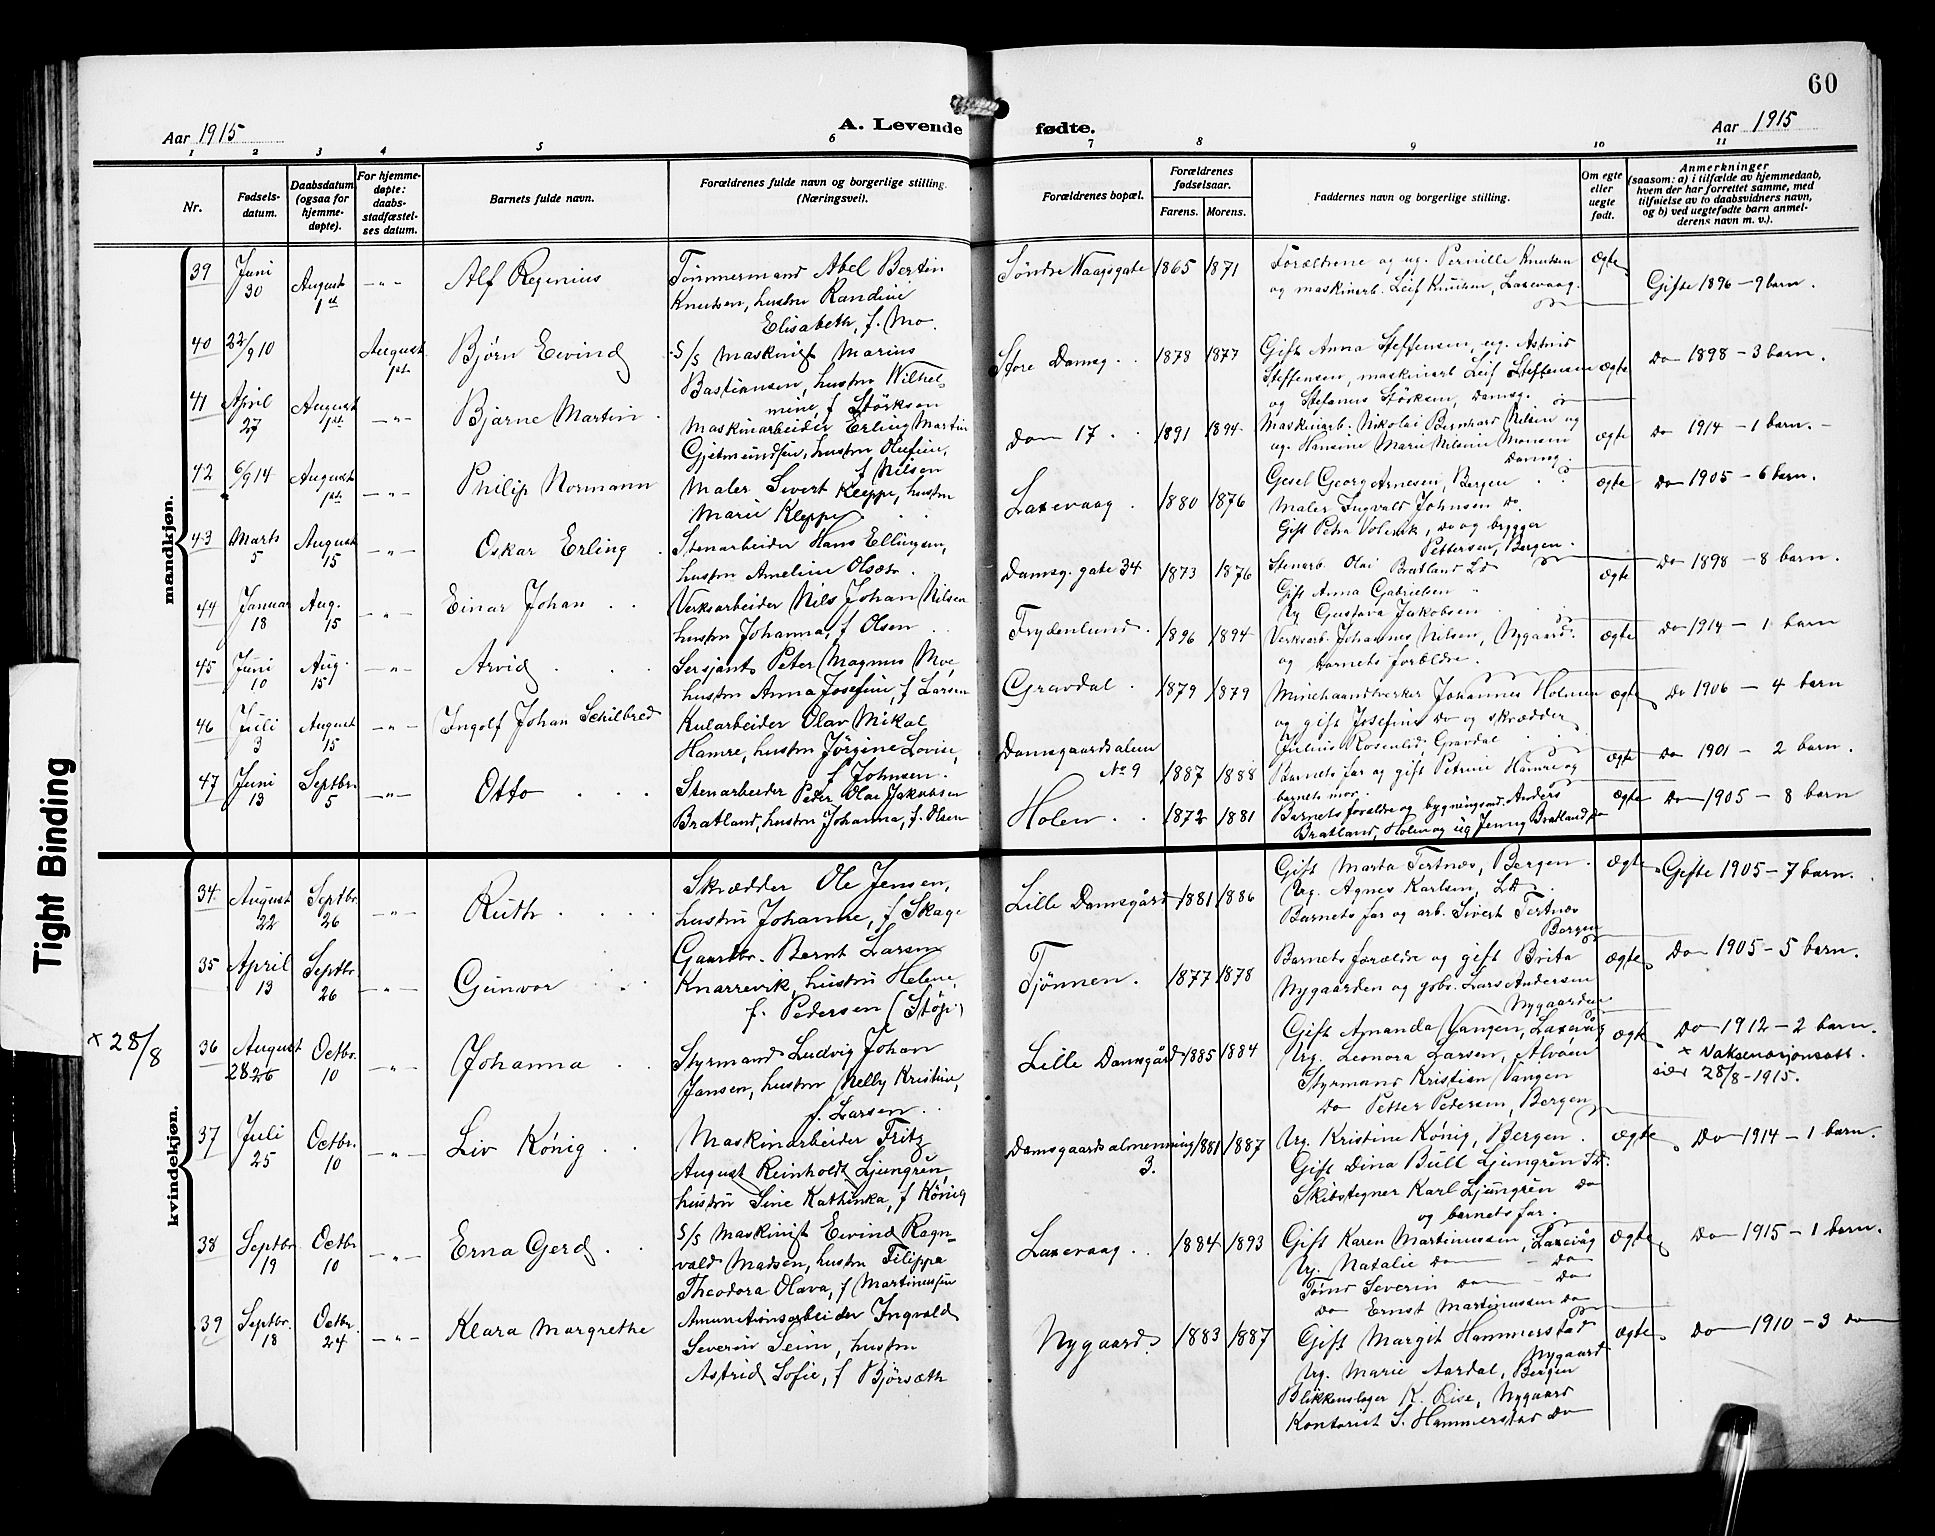 60
Aar 1915
A. Levende fødte.
Aar 1915
1 2 3 4 5 6 7 8 9 10 11
Nr.
Fødsels-
datum.
Daabsdatum
(ogsaa for
hjemme-
døpte).
For hjemme-
døpte:
daabs-
stadfæstel-
ses datum.
Barnets fulde navn.
Forældrenes fulde navn og borgerlige stilling.
(Næringsvei).
Forældrenes bopæl.
Forældrenes
fødselsaar.
Farens. Morens.
Faddernes navn og borgerlige stilling.
Om egte
eller
uegte
født.
Anmerkninger
(saasom: a) i tilfælde av hjemmedaab,
hvem der har forrettet samme, med
tilføielse av to daabsvidners navn,
og b) ved uegtefødte barn anmel-
derens navn m. v.).
mandkjøn.
39 Juni 30 August 1st -"- Alf Regenius
Tømmermand Abel Bertin
Knutsen, hustru Randine
Elisabeth, f. Mo.
Søndre Vaagsgate 1865 1871
Forældrene og ug. Pernille Knutsen
og maskinarb. Leif Knutsen, Laxevaag.
ægte Gifte 1896 - 9 barn.
40 22/9 10 August 1st. Bjørn Eivind
S/S Maskinist Marius
Bastiansen, hustru Wilhel-
mine, f Størksen
Store Damsg. 1878 1877
Gift Anna Steffensen, ug. Astrid
Steffensen, maskinarb Leif Steffensen
og Stefanus Størksen, Damsg.
ægte Do 1898 - 3 barn.
41 April 27 August 1st. -"- Bjarne Martin
Maskinarbeider Erling Martin
Gjetmundsen, hustru Olufine,
f Nilsen
Do 17 1891 1894
Maskinarb. Nikolai Bernhard Nilsen og
ug. Hansine Marie Nilsine Monsen
Damsg.
ægte Do 1914 - 1 barn. -
42 6/9 14 August 1st. -"- Philip Normann
Maler Sivert Kleppe, hustru
Marie Kleppe
Laxevaag 1880 1876
Gesel Georg Arnesen, Bergen
Maler Ingvald Johnsen Do
Gift Petra Volevik, do og brygger
Pettersen, Bergen.
ægte Do 1905 - 6 barn.
43 Marts 5 August 15 -"- Oskar Erling
Stenarbeider Hans Ellingsen,
hustru Ameline Olsdtr.
Damsg. gate 34 1873 1876
Stenarb. Olai Bratland Ld
Gift Anna Gabrielsen "
Ug Gustava Jakobsen
ægte Do 1898 - 8 barn.
44 Januar 18 Aug. 15 -"- Einar Johan
Verksarbeider Nils Johan Nilsen
hustru Johanna, f Olsen
Frydenlund 1896 1894
Verksarb. Johannes Nilsen, Nygaard
og barnets forældre.
ægte Do 1914 - 1 barn
45 Juni 10 Aug. 15 -"- Arvid
Sersjant Peter Magnus Moe,
hustru Anna Josefine, f Larsen
Gravdal 1879 1879
Minehaandverker Johannes Holmen
og gift Josefine Do og skrædder
Julius Rosenlid, Gravdal
ægte Do 1906 - 4 barn
46 Juli 3 August 15 -"- Ingolf Johan Schilbred
Kularbeider Olav Mikal
Hamre, hustru Jørgine Lovise,
f Johnsen.
Damsgaardsalmen
No 9 1887 1888
Barnets far og gift Petrine Hamre og
barnets mor.
ægte Do 1901 - 2 barn.
47 Juni 13 Septbr. 5 -"- Otto
Stenarbeider Peder Olai Jakobsen
Bratland, hustru Johanna, f. Olsen
Holen 1872 1881
Barnets forældre og bygningsnd. Anders
Bratland, Holen og ug Jenny Bratland do
ægte Do 1905 - 8 barn
kvindekjøn.
34 August 22 Septbr 26 -"- Ruth
Skrædder Ole Jensen,
hustru Johanne, f Skage
Lille Damsgård 1881 1886
Gift Marta Tertnæs, Bergen.
Ug. Agnes Karlsen, Ld
Barnets far og arb. Sivert Tertnæs
Bergen
ægte Gifte 1905 - 7 barn.
35 April 13 Septbr 26 -"- Gunvor
Gaardbr. Bernt Larsen
Knarrevik, hustru Helene,
f. Pedersen (Støp)
Tjønnen. 1877 1878
Barnets forældre og gift Brita
Nygaarden og gbr. Lars Andersen
Nygaarden
ægte Do 1905 - 5 barn.
x 28/8
36 August 28 26 Octbr. 10 -"- Johanna
Styrmand Ludvig Johan
Jansen, hustru Nelly Kristine,
f. Larsen
Lille Damsgård 1885 1884
Gift Amanda Vangen, Laxevåg
Ug. Leonora Larsen, Alvøen
Styrmand Kristian Vangen
Do Petter Pedersen, Bergen
ægte Do 1912 - 2 barn.
x Vaksenasjonsatt.
sier 28/8-1915.
37 Juli 25 Octbr. 10 -"- Liv König
Maskinarbeider Fritz
August Reinholdt Ljungrén,
hustru Sine Kathinka, f König
Damsgaardsalmenning 1881 1887
3.
Ug. Kristine König, Bergen.
Gift Dina Bull Ljungrén Do.
Skibstegner Karl Ljungrén Do
og barnets far.
ægte Do 1914 - 1 barn.
38 Septbr. 19 Octbr 10 -"- Erna Gerd
S/S Maskinist Eivind Ragn-
vald Madsen, hustru Filippa
Theodora Olava, f Martinussen
Laxevaag 1884 1893
Gift Karen Martinussen, Laxevåg
Ug. Natalie Do - Do
Tømr Severin Do - Do
Do Ernst Martinussen Do
ægte Do 1915 - 1 barn.
39 Septbr. 18 Octbr. 24 -"- Klara Margrethe
Amunitionsarbeider Ingvald
Severin Seim, hustru
Astrid Sofie, f Bjørsæth
Nygaard 1883 1887
Gift Margit Hammerstad
Nygaard
Ug. Marie Aardal, Bergen
Blikkenslager K. Rise, Nygaard
Kontorist S. Hammerstad Do
ægte Do 1910 - 3 Do
Tight Binding